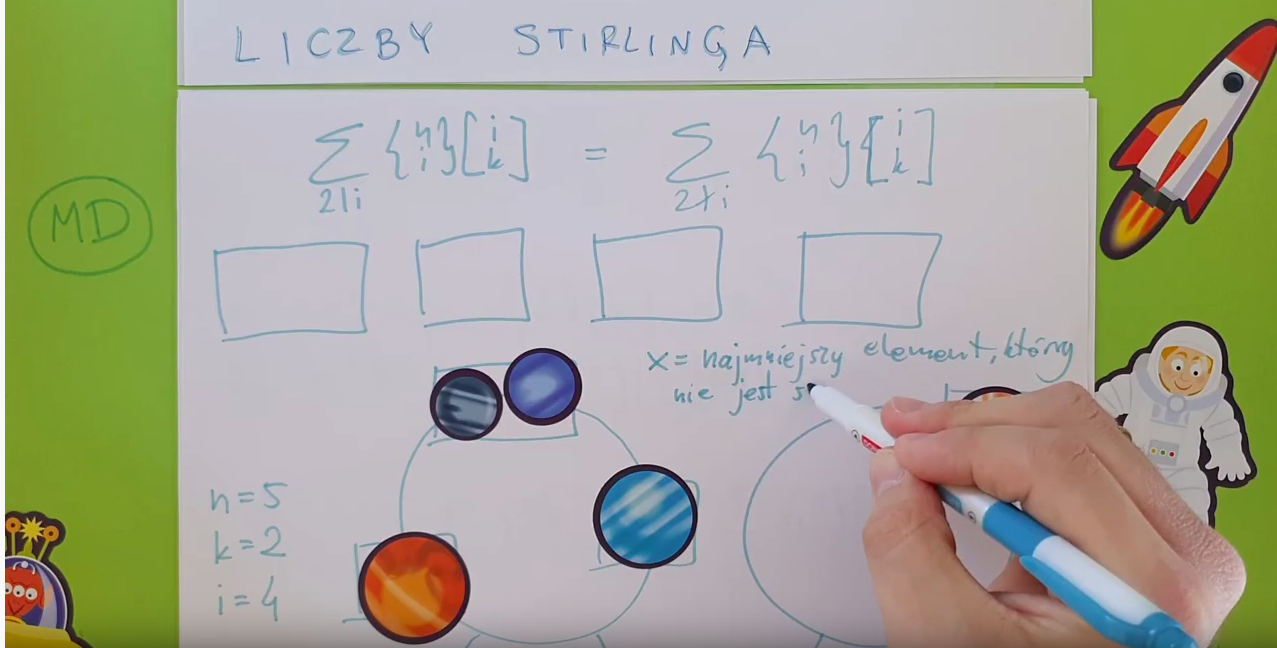 LICZBY STIRLINGA
∑ {n i} [i k] = ∑ {n i} [i k]
2|i 2∤i
MD
x = najmniejszy element, który
nie jest s
n = 5
k = 2
i = 4